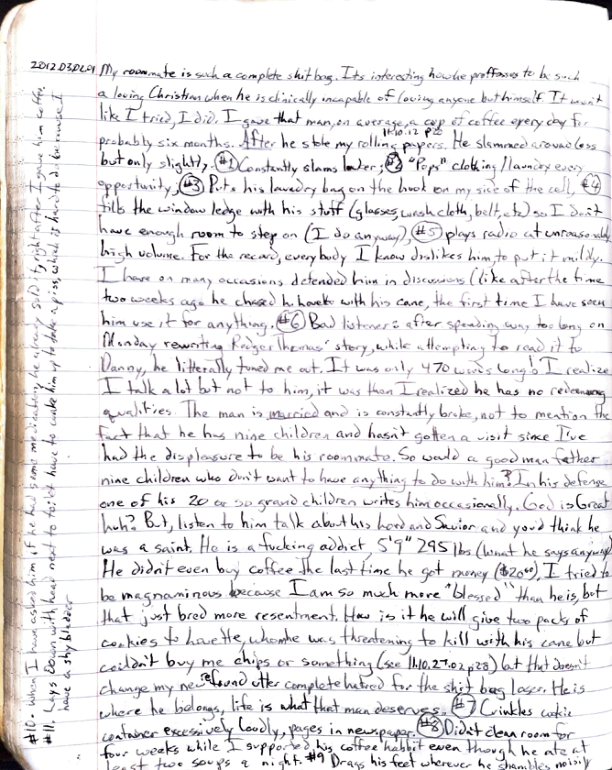 2012D3DL01 My roommate is such a complete shit bag. Its interesting how he proffesses to be such
a loving Christian when he is clinically incapable of loving anyone but himself. It won't
like I tried, I did. I gave that man, on average, a cup of coffee every day for
probably six months. After he stole my rolling papers. He slammed around less
11.10.12 p28
but only slightly, #1 Constantly slams locker; #2 "Pops" clothing/laundry every
opportunity, #3 Puts his laundry bag on the hook on my side of the cell, #4
fills the window ledge with his stuff (glasses, wash cloth, belt, etc) so I don't
have enough room to step on (I do anyway), #5 plays radio at unreasonably
high volume. For the record, everybody I know dislikes him to put it mildly.
I have on many occasions defended him in discussions (like after the time
two weeks ago he chased with his cane, the first time I have seen
him use it for anything. #6 Bad listener: after spending way too long on
Monday rewriting Rodger Thomas' story, while attempting to read it to
Danny, he litterally tuned me out. It was only 470 words long! I realize
I talk a lot but not to him, it was then I realized he has no redeeming
qualities. The man is married and is constantly broke, not to mention the
fact that he has nine children and hasn't gotten a visit since I've
had the displeasure to be his roommate. So would a good man father
nine children who don't want to have anything to do with him? In his defense
one of his 20 or so grand children writes him occasionally. God is Great
huh? But, listen to him talk about his lord and Savior and you'd think he
was a saint. He is a fucking addict, 5'9" 295 lbs (what he says anyway)
He didn't even buy coffee the last time he got money ($20⁰⁰), I tried to
be magnaminous because I am so much more "blessed" than he is, but
that just bred more resentment. How is it he will give two packs of
cookies to whome he was threatening to kill with his cane but
couldn't buy me chips or something (see 11.10.27.02 p28) but that doesn't
change my new found utter complete hatred for the shit bag loser. He is
where he belongs, life is what that man deserves. #7 Crinkles cookie
container excessively loudly, pages in newspaper. #8 Didn't clean room for
four weeks while I supported his coffee habbit even though he ate at
least two soups a night. #9 Drags his feet wherever he shambles noisily
#10 - When I have asked him if he had some me disturbing he already said it, right after I gave him coffee.
#11. Lays down with head next to toilet have to wake him up to take a piss, which is hard to do because I
have a shy bladder